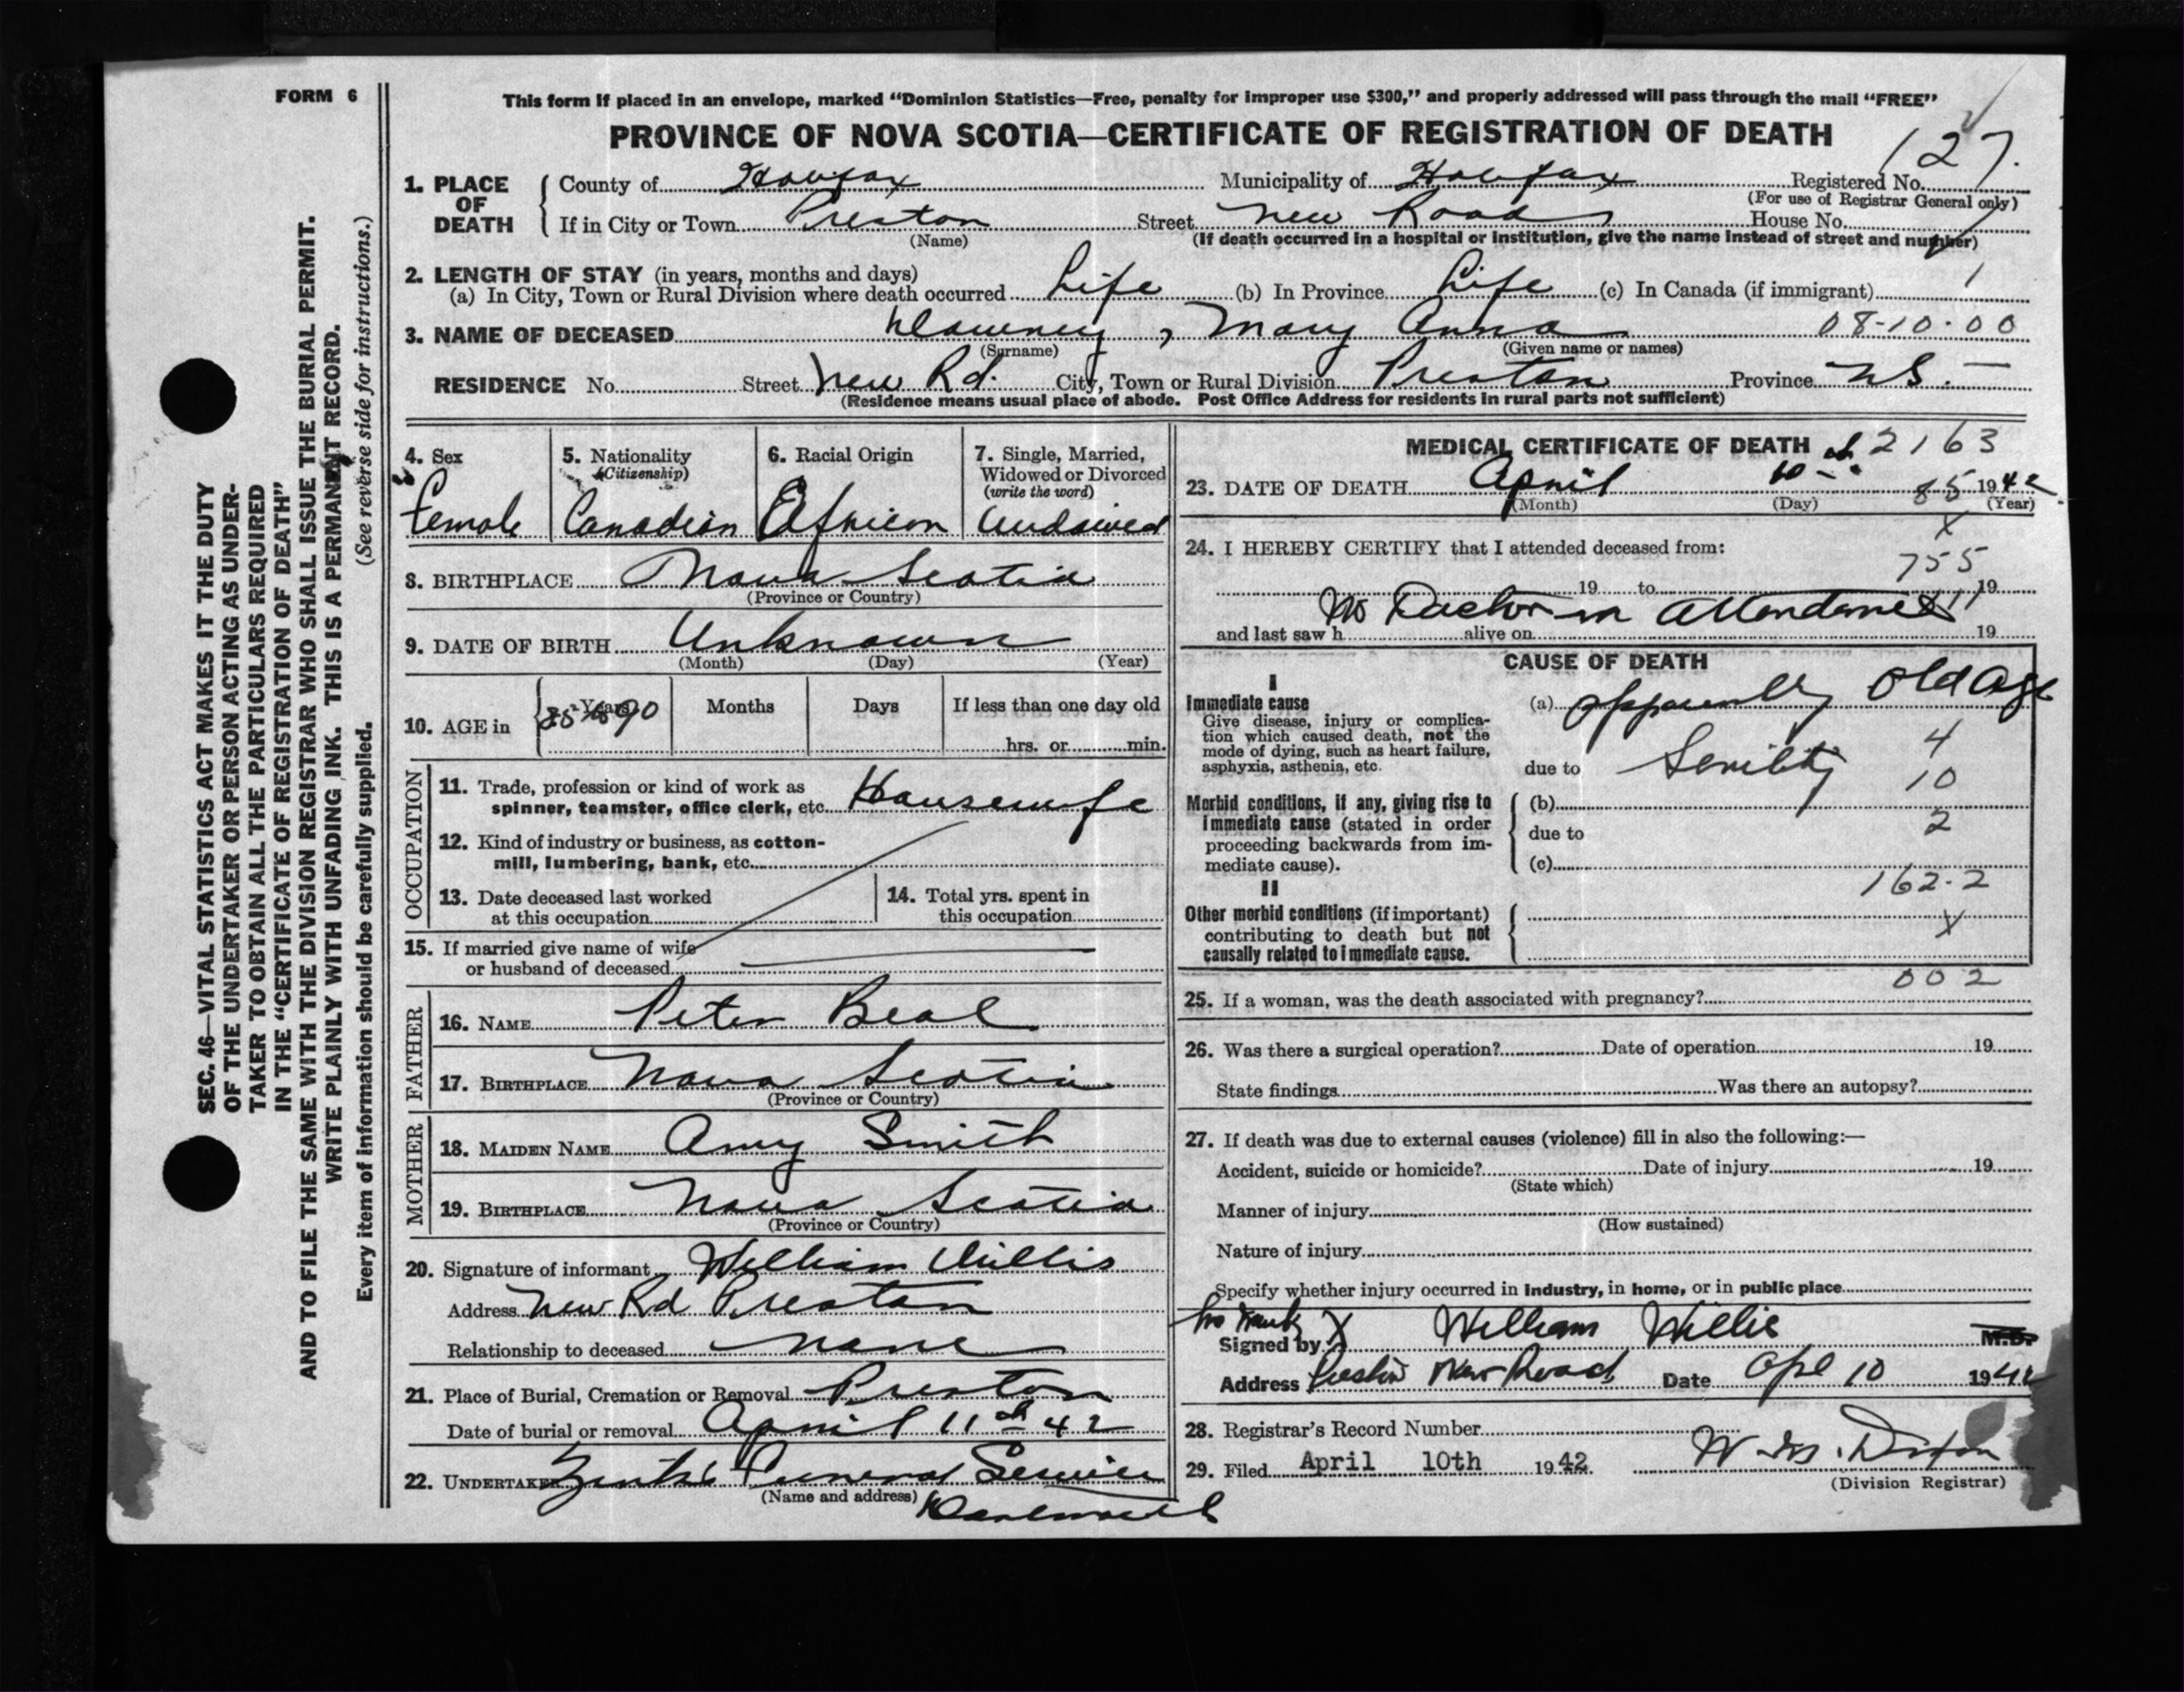 FORM 6
This form if placed in an envelope, marked “Dominion Statistics—Free, penalty for improper use $300,” and properly addressed will pass through the mail “FREE”
PROVINCE OF NOVA SCOTIA—CERTIFICATE OF REGISTRATION OF DEATH
127.
1. PLACE OF DEATH County of Halifax Municipality of Halifax Registered No.
(For use of Registrar General only)
If in City or Town Preston Street New Road House No.
(Name) (If death occurred in a hospital or institution, give the name instead of street and number)
2. LENGTH OF STAY (in years, months and days)
(a) In City, Town or Rural Division where death occurred Life (b) In Province Life (c) In Canada (if immigrant) 1
3. NAME OF DECEASED Downey, Mary Anna 08-10-00
(Surname) (Given name or names)
RESIDENCE No. Street New Rd. City, Town or Rural Division Preston Province NS.
(Residence means usual place of abode. Post Office Address for residents in rural parts not sufficient)
4. Sex 5. Nationality (Citizenship) 6. Racial Origin 7. Single, Married, Widowed or Divorced (write the word)
Female Canadian African
8. BIRTHPLACE Nova Scotia
(Province or Country)
9. DATE OF BIRTH Unknown
(Month) (Day) (Year)
10. AGE in Years Months Days If less than one day old
85 90 hrs. or min.
OCCUPATION
11. Trade, profession or kind of work as spinner, teamster, office clerk, etc. Housewife
12. Kind of industry or business, as cotton-mill, lumbering, bank, etc.
13. Date deceased last worked at this occupation
14. Total yrs. spent in this occupation
15. If married give name of wife or husband of deceased
FATHER
16. NAME Peter Beal
17. BIRTHPLACE Nova Scotia
(Province or Country)
MOTHER
18. MAIDEN NAME Amy Smith
19. BIRTHPLACE Nova Scotia
(Province or Country)
20. Signature of informant William Willis
Address New Rd Preston
Relationship to deceased none
21. Place of Burial, Cremation or Removal Preston
Date of burial or removal April 11th 42
22. UNDERTAKER Funeral Service
(Name and address) Dartmouth
MEDICAL CERTIFICATE OF DEATH 2163
23. DATE OF DEATH April 10 85 1942
(Month) (Day) (Year)
X
24. I HEREBY CERTIFY that I attended deceased from:
755
19 to 19
No Doctor in attendance
and last saw h alive on 19
CAUSE OF DEATH
I
Immediate cause
Give disease, injury or complication which caused death, not the mode of dying, such as heart failure, asphyxia, asthenia, etc.
(a) Apparently Old Age
4
due to Senility
10
Morbid conditions, if any, giving rise to immediate cause (stated in order proceeding backwards from immediate cause).
(b)
due to
2
(c)
162-2
II
Other morbid conditions (if important) contributing to death but not causally related to immediate cause.
X
002
25. If a woman, was the death associated with pregnancy?
26. Was there a surgical operation? Date of operation 19
State findings Was there an autopsy?
27. If death was due to external causes (violence) fill in also the following:—
Accident, suicide or homicide? Date of injury 19
(State which)
Manner of injury
(How sustained)
Nature of injury
Specify whether injury occurred in industry, in home, or in public place
Signed by X William Willis M.D.
Address Preston New Road Date Apl 10 1942
28. Registrar’s Record Number
29. Filed April 10th 1942.
(Division Registrar)
SEC. 46—VITAL STATISTICS ACT MAKES IT THE DUTY
OF THE UNDERTAKER OR PERSON ACTING AS UNDER-
TAKER TO OBTAIN ALL THE PARTICULARS REQUIRED
IN THE “CERTIFICATE OF REGISTRATION OF DEATH”
AND TO FILE THE SAME WITH THE DIVISION REGISTRAR WHO SHALL ISSUE THE BURIAL PERMIT.
WRITE PLAINLY WITH UNFADING INK. THIS IS A PERMANENT RECORD.
Every item of information should be carefully supplied. (See reverse side for instructions.)